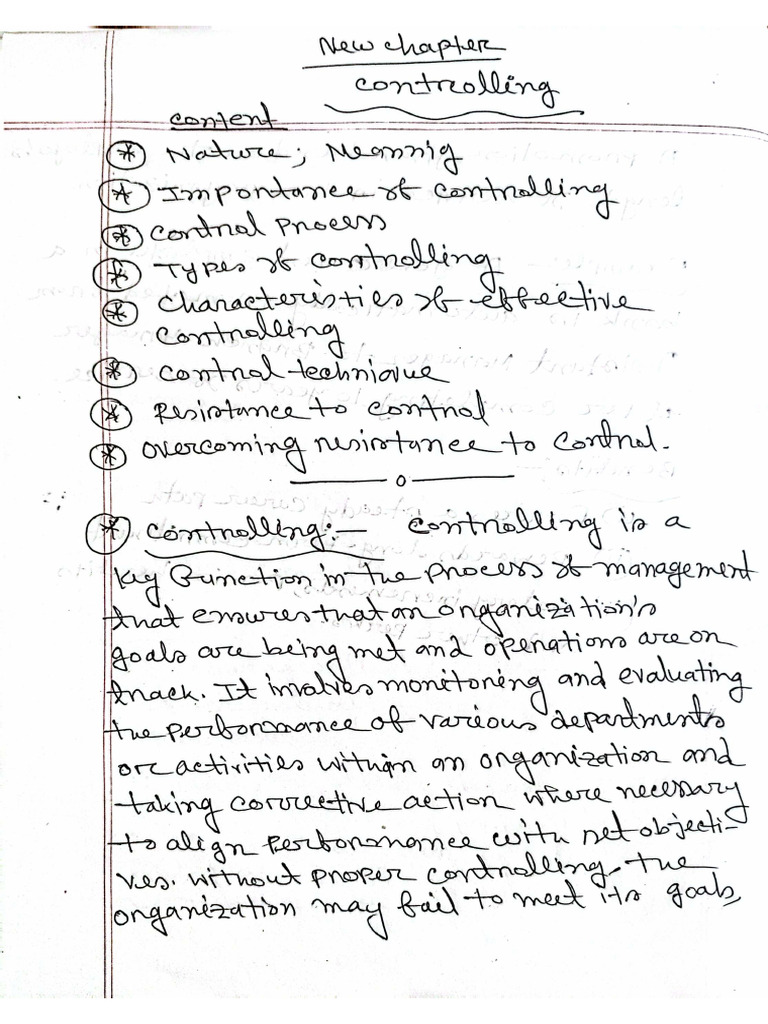 New chapter
controlling
content
* Nature; Meannig
* Importance of controlling
* Control process
* Types of controlling
* characteristics of effective
controlling
* control technique
* Resistance to control
* overcoming resistance to control.
* controlling:- controlling is a
key function in the process of management
that ensures that an organization's
goals are being met and operations are on
track. It involves monitoring and evaluating
the performance of various departments
or activities within an organization and
taking corrective action where necessary
to align performance with set objecti-
ves. without proper controlling, the
organization may fail to meet its goals,